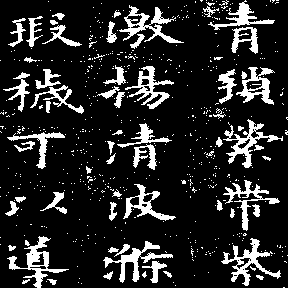 青瑣縈帶紫
激揚清波滌
瑕穢可以導